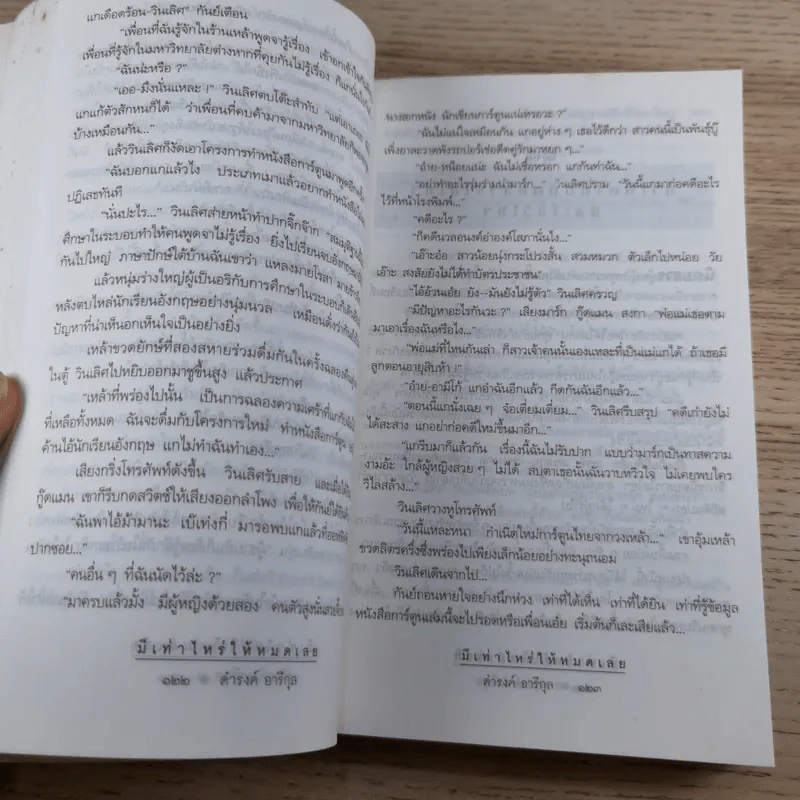 แกเดือดร้อน-วินเลิศ" กันย์เตือน
"เพื่อนที่ฉันรู้จักในร้านเหล้าพูดจารู้เรื่อง เข้าอกเข้าใจกันดี
เพื่อนที่รู้จักในมหาวิทยาลัยต่างหากที่คุยกันไม่รู้เรื่อง ก็แกนั่นไง
"ฉันน่ะหรือ ?"
"เออ-มึงนั่นแหละ !" วินเลิศตบโต๊ะสำทับ "แต่เอาเถอะ
แกแก้ตัวสักหนก็ได้ ว่าเพื่อนที่คบค้ามาจากมหาวิทยาลัย
บ้างเหมือนกัน..."
แล้ววินเลิศก็งัดเอาโครงการทำหนังสือการ์ตูนมาพูดอีก
"ฉันบอกแกแล้วไง ประเภทเมาแล้วอยากทำหนังสือ
ปฏิเสธทันที
"นั่นปะไร..." วินเลิศส่ายหน้าทำปากจิ๊กจ๊าก "สมมุติฐาน
ศึกษาในระบอบทำให้คนพูดจาไม่รู้เรื่อง ยิ่งไปเรียนจบอังกฤษ
กันไปใหญ่ ภาษาปักษ์ใต้บ้านฉันเขาว่า แหลงมายโรสา
แล้วหนุ่มร่างใหญ่ผู้เป็นอริกับการศึกษาในระบอบก็
หลังตบไหล่นักเรียนอังกฤษอย่างนุ่มนวล เหมือนดั่งว่ากัน
ปัญหาที่น่าเห็นอกเห็นใจเป็นอย่างยิ่ง
เหล้าขวดยักษ์ที่สองสหายร่วมดื่มกันในครั้งฉลอง
ในตู้ วินเลิศไปหยิบออกมาชูขึ้นสูง แล้วประกาศ
"เหล้าที่พร่องไปนั้น เป็นการฉลองความเศร้าที่แกกับฉัน
ที่เหลือทั้งหมด ฉันจะดื่มกับโครงการใหม่ ทำหนังสือการ์ตูน
ค้านไอ้นักเรียนอังกฤษ แกไม่ทำฉันทำเอง..."
เสียงกริ่งโทรศัพท์ดังขึ้น วินเลิศรับสาย และเมื่อได้
กู๊ดแมน เขาก็รีบกดสวิตช์ให้เสียงออกลำโพง เพื่อให้กันย์ได้ยิน
"ฉันพาไอ้ม้ามานะ เบ๊เท่งกี่ มารอพบแกแล้วที่ออฟฟิศ
ปากซอย..."
"คนอื่น ๆ ที่ฉันนัดไว้ล่ะ ?"
"มาครบแล้วมั้ง มีผู้หญิงด้วยสอง คนตัวสูงนั่นสวย
มีเท่าไหร่ให้หมดเลย
๑๒๒ ดำรงค์ อารีกุล
นางสกหนัง นักเขียนการ์ตูนแน่เหรอวะ ?"
"ฉันไม่แน่ใจเหมือนกัน แกอยู่ห่าง ๆ เธอไว้ดีกว่า สาวคนนี้เป็นพันธุ์บู๊
เพิ่งอาละวาดพังรถปอร์เช่อดีตคู่รักมาหยก ๆ..."
"อ๋าย-หน็อยแน่ะ ฉันไม่เชื่อหรอก แกกันท่าฉัน..."
"อย่าทำอะไรรุ่มร่ามน่ามาร์ก..." วินเลิศปราม "วันนี้แกมาก่อคดีอะไร
ไว้ที่หน้าโรงพิมพ์..."
"คดีอะไร ?"
"ก็คดีนวลอนงค์อ่าองค์โสภานั่นไง..."
"เอ๊าะอ๋อ สาวน้อยนุ่งกระโปรงสั้น สวมหมวก ตัวเล็กไปหน่อย วัย
เอ๊าะ สงสัยยังไม่ได้ทำบัตรประชาชน"
"ไอ้อ้วนเอ๋ย ยัง--มันยังไม่รู้ตัว" วินเลิศครวญ
"มีปัญหาอะไรกันวะ ?" เสียงมาร์ก กู๊ดแมน สงกา "พ่อแม่เธอตาม
มาเอาเรื่องฉันหรือไง..."
"พ่อแม่ที่ไหนกันเล่า ก็สาวเจ้าคนนั้นเองแหละที่เป็นแม่แกได้ ถ้าเธอมี
ลูกตอนอายุสิบห้า !"
"อ๋าย-อามิโก้ แกอำฉันอีกแล้ว กีดกันฉันอีกแล้ว..."
"ตอนนี้แกนั่งเฉย ๆ จ๋อเตี่ยมเตี่ยม..." วินเลิศรีบสรุป "คดีเก่ายังไม่
ได้สะสาง แกอย่าก่อคดีใหม่ขึ้นมาอีก..."
"แกรีบมาก็แล้วกัน เรื่องนี้ฉันไม่รับปาก แบบว่ามาร์กเป็นทาสความ
งามอ้ะ ใกล้ผู้หญิงสวย ๆ ไม่ได้ สบตาเธอนั้นฉันวาบหวิวใจ ไม่เคยพบใคร
วิไลสล้าง..."
วินเลิศวางหูโทรศัพท์
"วันนี้แหละหนา กำเนิดใหม่การ์ตูนไทยจากวงเหล้า..." เขาอุ้มเหล้า
ขวดลิตรครึ่งซึ่งพร่องไปเพียงเล็กน้อยอย่างทะนุถนอม
วินเลิศเดินจากไป...
กันย์ถอนหายใจอย่างนึกห่วง เท่าที่ได้เห็น เท่าที่ได้ยิน เท่าที่รู้ข้อมูล
หนังสือการ์ตูนเล่มนี้จะไปรอดหรือเพื่อนเอ๋ย เริ่มต้นก็เละเสียแล้ว...
มีเท่าไหร่ให้หมดเลย
ดำรงค์ อารีกุล ๑๒๓